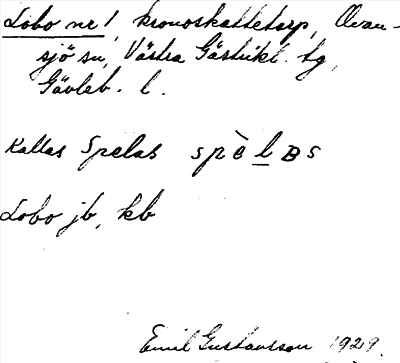 Lobo nr 1, kronoskattetorp, Ovan-
sjö sn, Västra Gästrikl. tg,
Gävleb. l.
Kallas Spelas spè l ʙ s
Lobo jb, kb
Emil Gustavsson 1929.